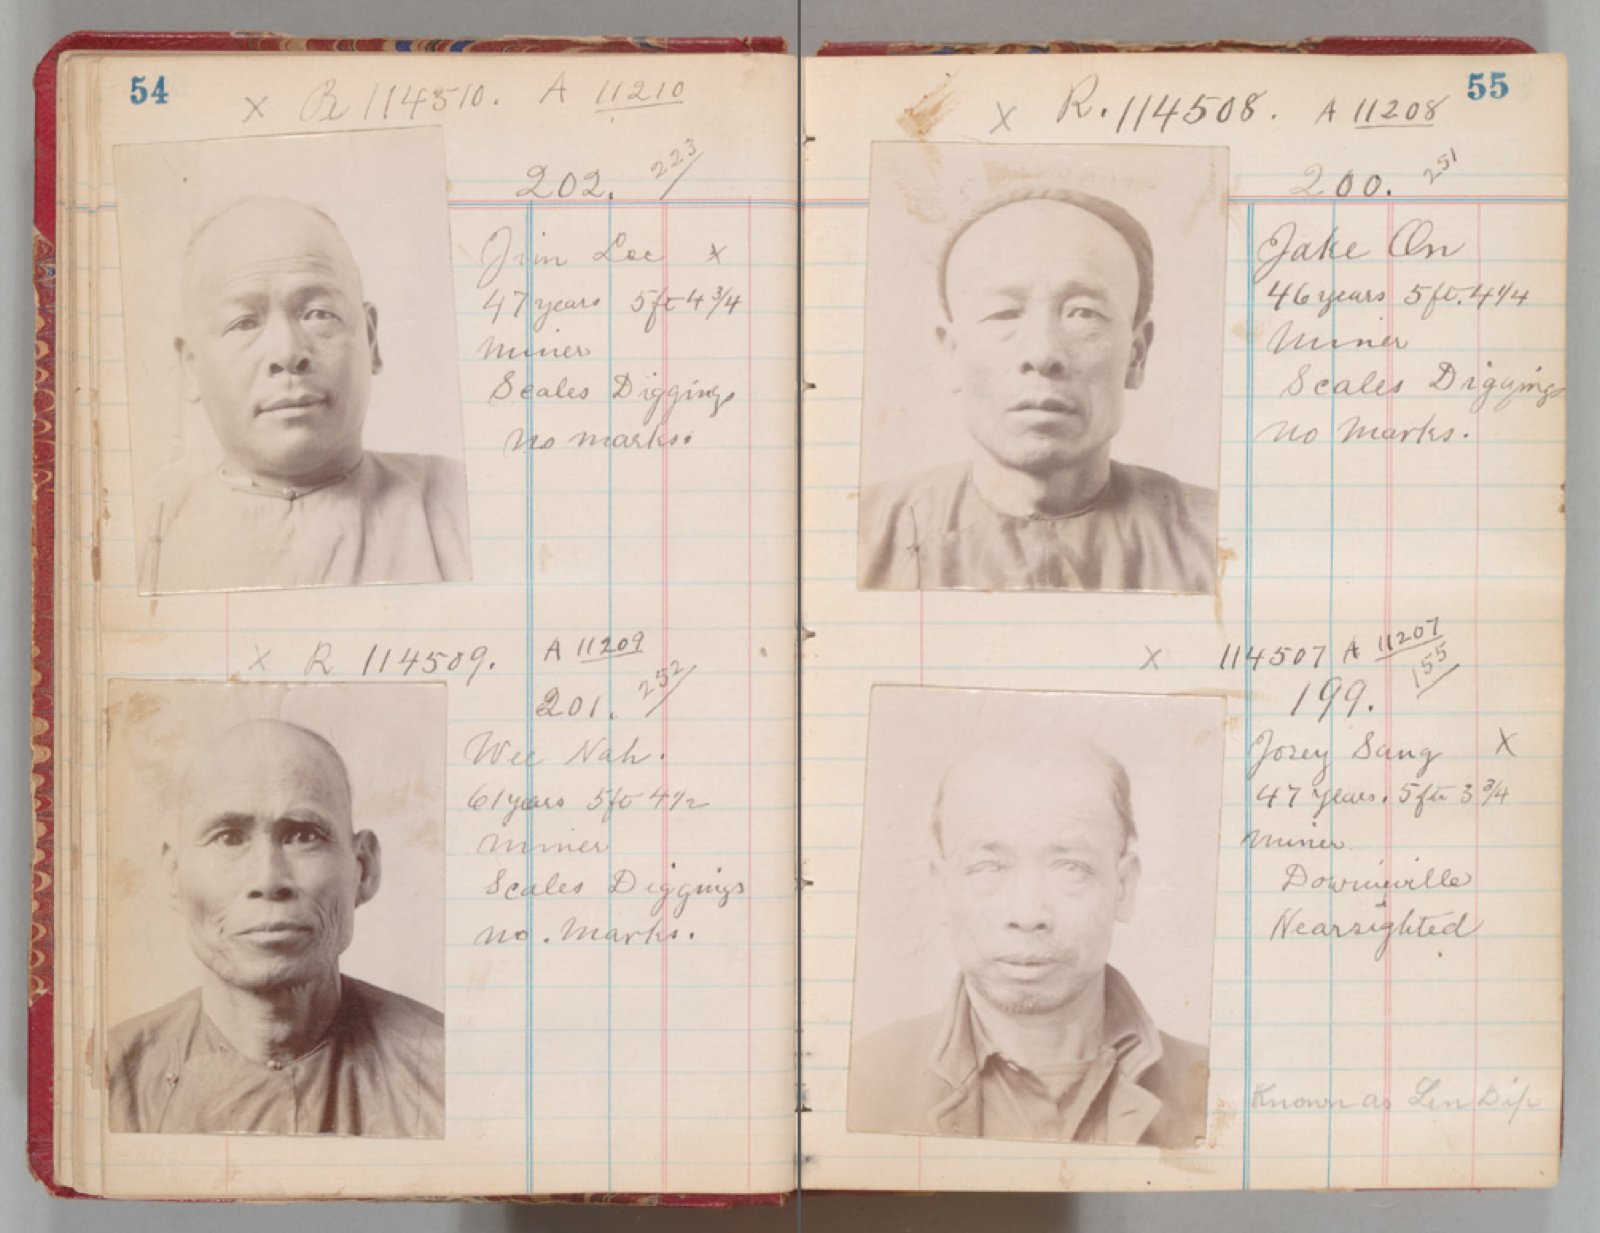 54
X R 114510. A 11210
202. 223/
Jim Lee x
47 years 5ft 4 3/4
Miner
Scales Diggings
No marks.
X R 114509. A 11209
201. 252/
Wee Nah.
61 years 5ft 4 1/2
Miner
Scales Diggings
no. Marks.
55
X R. 114508. A 11208
200. 251
Jake On
46 years 5 ft. 4 1/4
Miner
Scales Diggings
No Marks.
X 114507 A 11207
199. 155
Josey Sang X
47 years. 5 ft 3 3/4
Miner
Downieville
Nearsighted
Known as